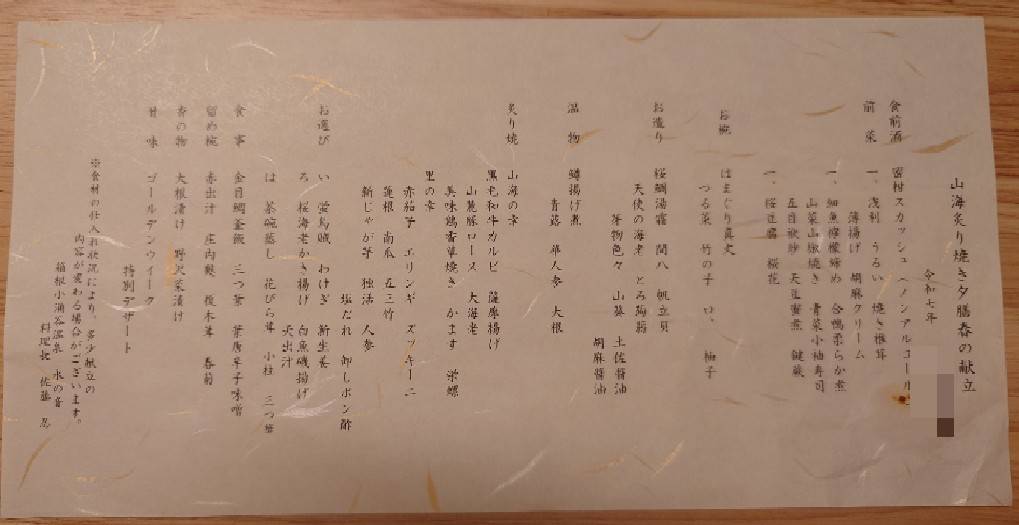 山海炙り焼き夕膳春の献立
令和七年
食前酒 蜜柑スカッシュ ノンアルコール
前菜 一、浅利 うるい 焼き椎茸
薄揚げ 胡麻クリーム
一、細魚檸檬締め 合鴨柔らか煮
山菜山椒焼き 青菜小袖寿司
五目 天豆蜜煮
一、桜豆腐 桜花
お椀 はまぐり真丈
つる菜 竹の子 口、 柚子
お造り 桜鯛湯霜 間八 帆立貝
天使の海老 とろ湯葉
芽物色々 山葵 土佐醤油
胡麻醤油
温物 鱒揚げ煮
青蕗 華人参 大根
炙り焼 山海の幸
黒毛和牛カルビ 薩摩揚げ
山麓豚ロース 大海老
美味鶏香草焼き かます 栄螺
里の幸
赤茄子 エリンギ ズッキーニ
蓮根 南瓜 五三竹
新じゃが芋 独活 人参
塩だれ 卸しポン酢
お選び い 蛍烏賊 わけぎ 新生姜
ろ 桜海老かき揚げ 白魚磯揚げ
天出汁
は 茶碗蒸し 花びら茸 小柱 三つ葉
食事 金目鯛釜飯 三つ葉 葉唐辛子味噌
留め椀 赤出汁 庄内麩 榎木茸 春菊
香の物 大根漬け 野沢菜漬け
甘味 ゴールデンウイーク
特別デザート
※食材の仕入れ状況により、多少献立の
内容が変わる場合がございます。
箱根小涌谷温泉 水の音
料理長 佐藤 忍